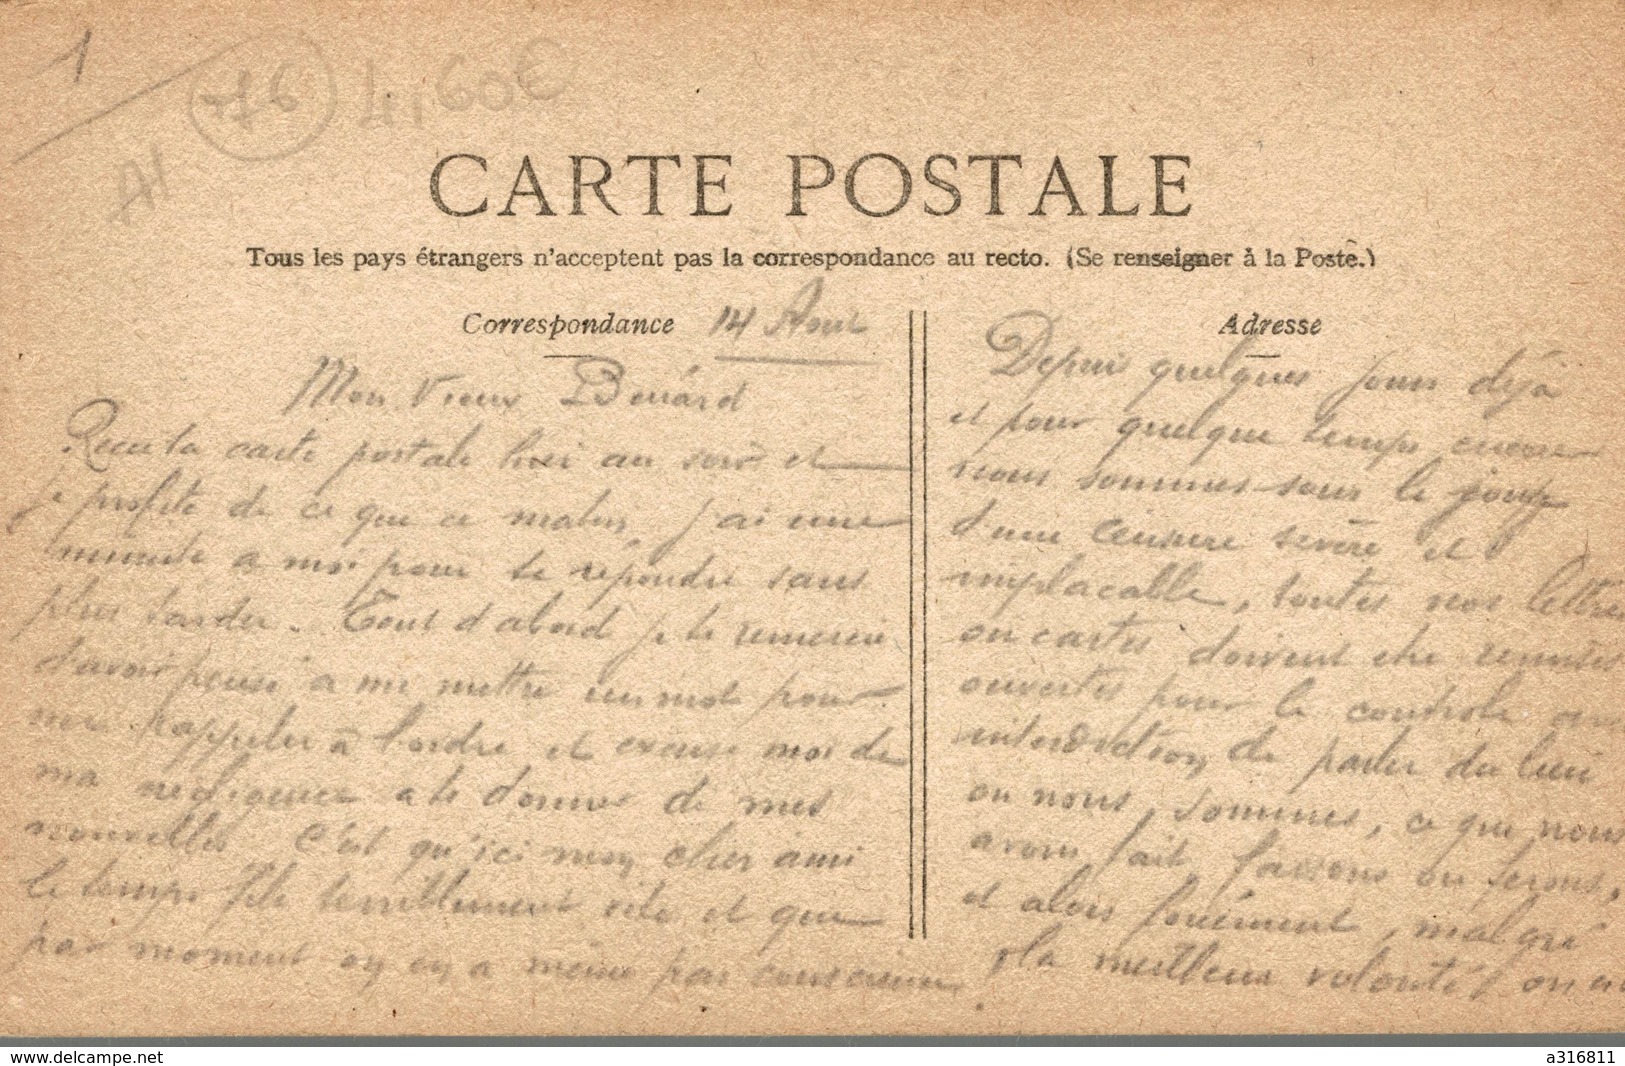 1
76
4,60€
A1
CARTE POSTALE
Tous les pays étrangers n'acceptent pas la correspondance au recto. (Se renseigner à la Poste.)
Correspondance
14 Aout
Mon Vieux
Recu ta carte postale hier au soir et
je profite de ce que ce matin j'ai une
minute a moi pour te répondre sans
plus tarder. Tout d'abord je te remercie
d'avoir pensé a me mettre un mot pour
me rappeler à l'ordre et excuse moi de
ma négligence a te donner de mes
nouvelles C'est qu'ici mon cher ami
le temps file terriblement vite et que
par moment on en a même pas conscience
Adresse
Depuis quelques jours déjà
et pour quelque temps encore
nous sommes sous le joug
d'une censure sévère et
implacable, toutes nos lettres
ou cartes doivent etre remises
ouvertes pour le controle
interdiction de parler du lieu
ou nous sommes, ce que nous
avons fait faisons ou ferons,
et alors forcément, malgré
la meilleure volonté on
www.delcampe.net
a316811